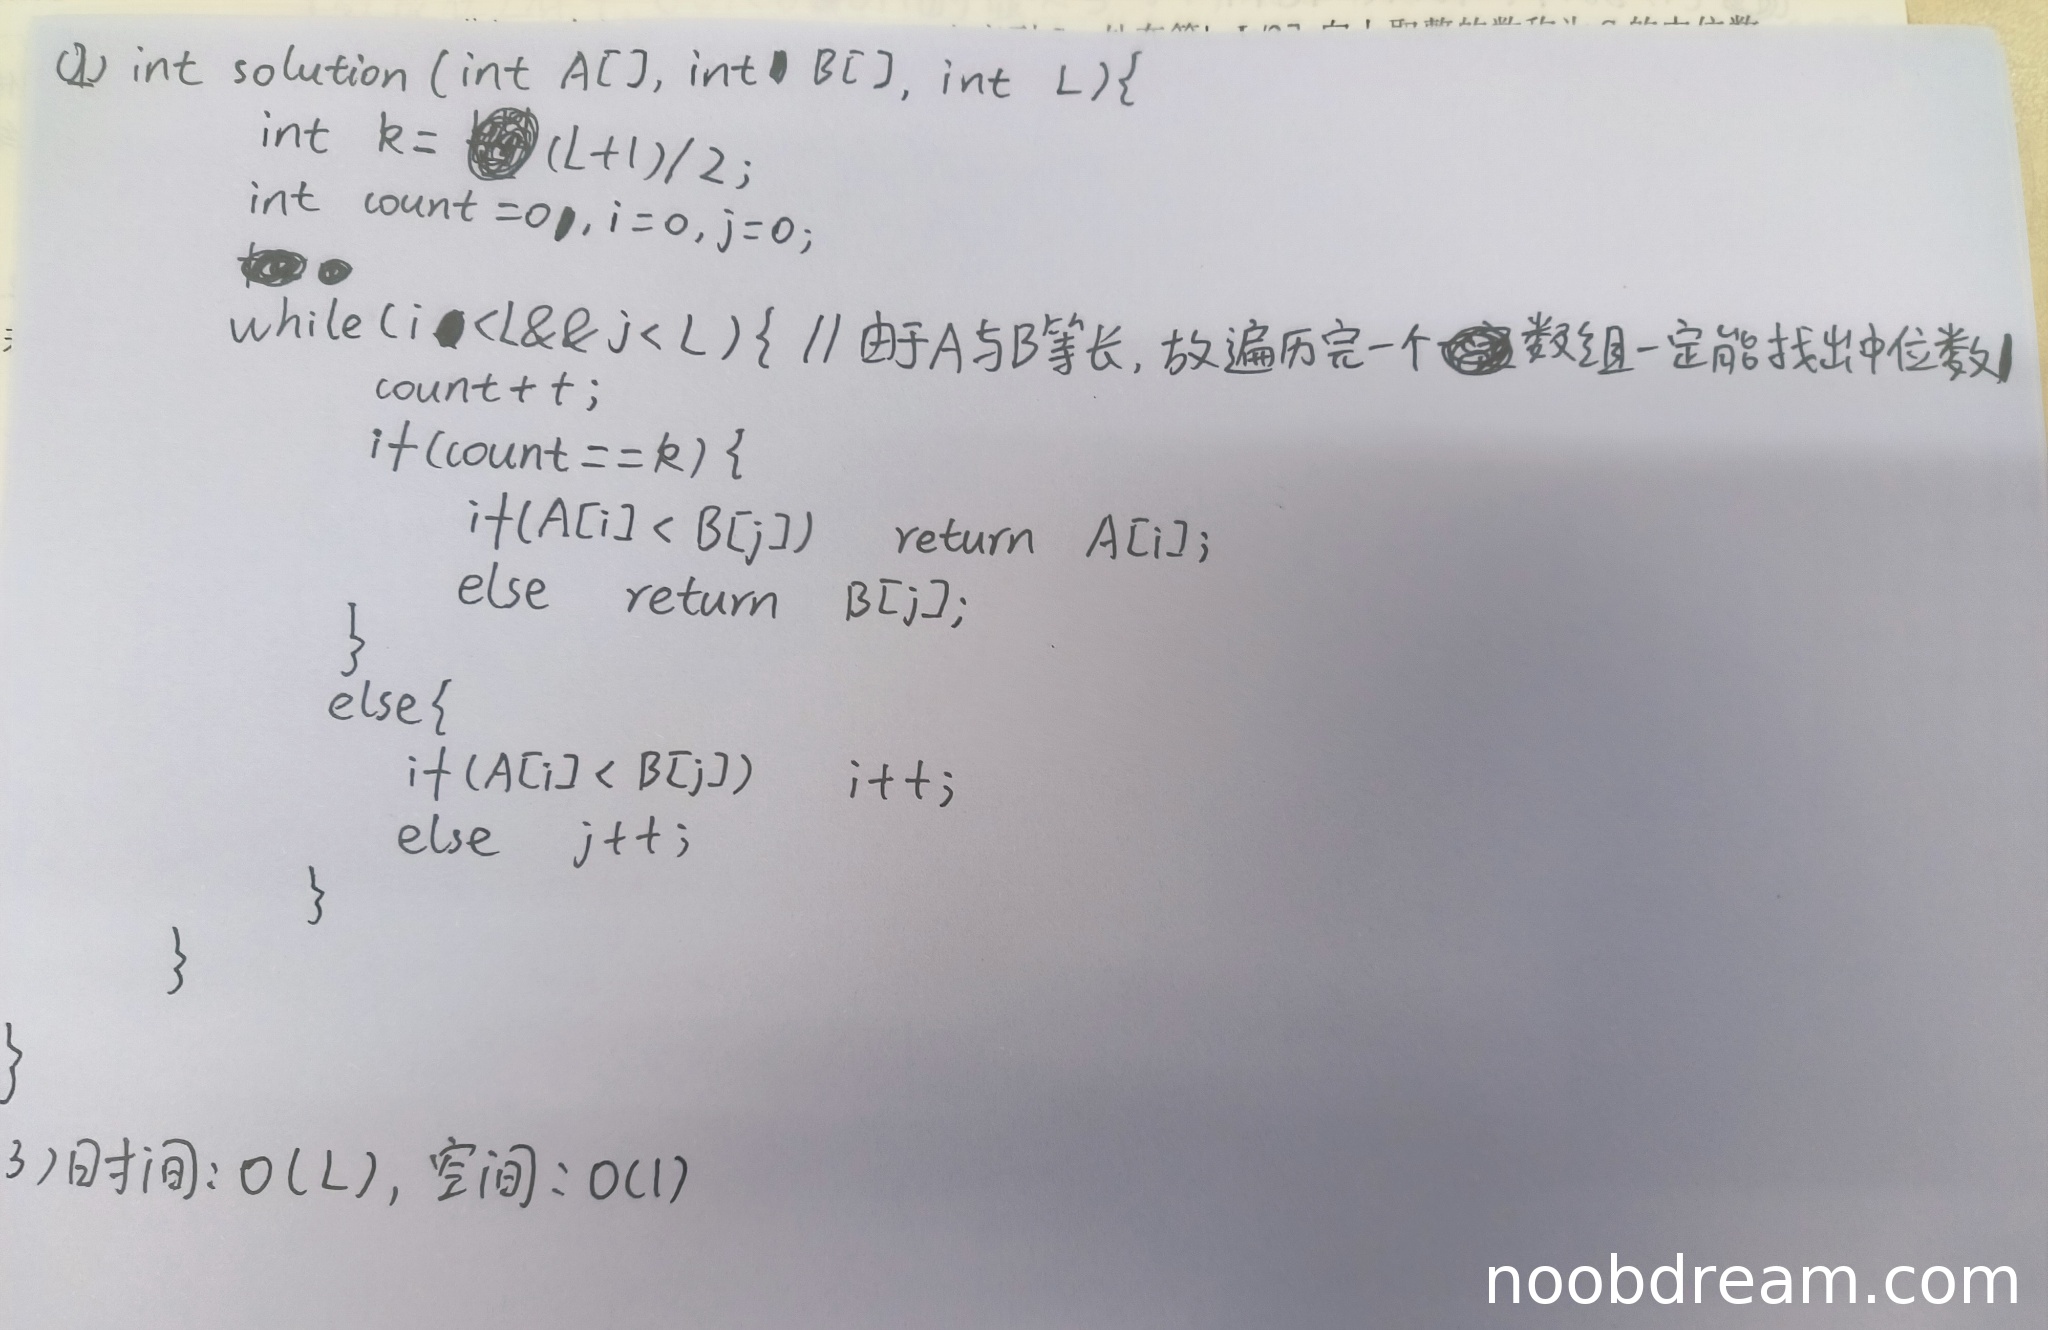 (2) int solution (int A[], int B[], int L){
int k= (L+1)/2;
int count =0, i=0, j=0;
while(i<L&&j<L){ //由于A与B等长,故遍历完一个数组一定能找出中位数
count++;
if(count==k){
if(A[i]<B[j]) return A[i];
else return B[j];
}
else{
if(A[i]<B[j]) i++;
else j++;
}
}
}
3)时间:O(L),空间:O(1)
noobdream.com